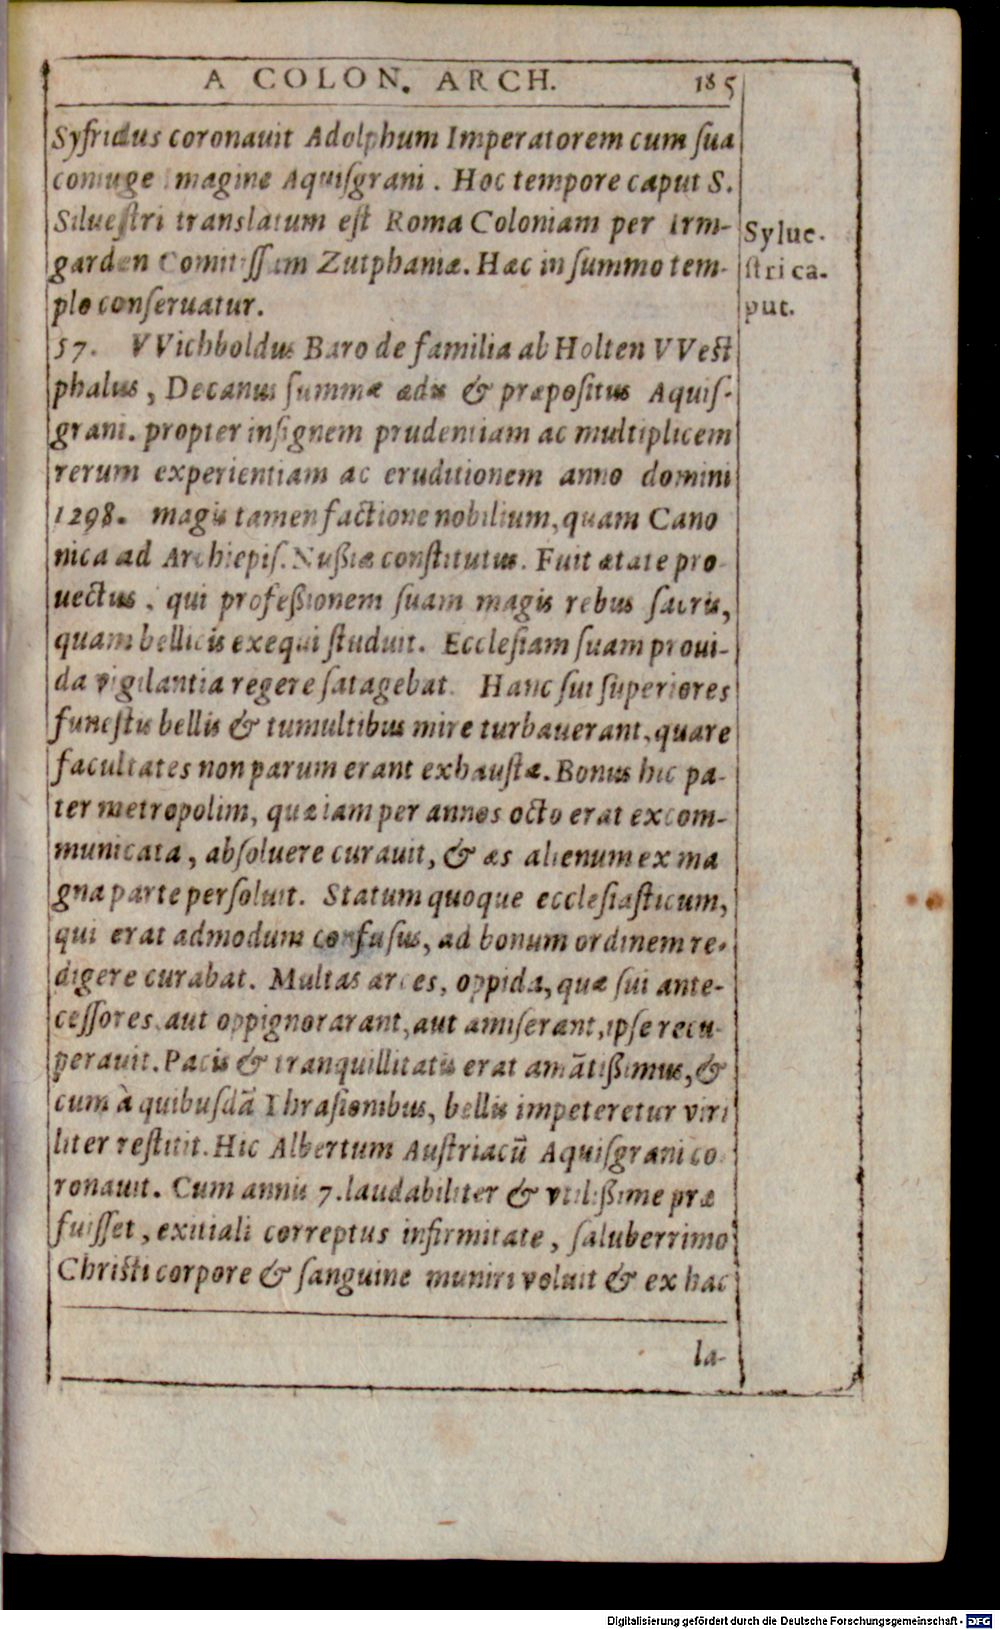 A COLON. ARCH. 185
Syfridus coronauit Adolphum Imperatorem cum ſua
coniuge Imagine Aquiſgrani. Hoc tempore caput S.
Silueſtri translatum eſt Roma Coloniam per Irm-
garden Comitiſſam Zutphaniæ. Hæc in ſummo tem-
plo conſeruatur.
Sylue-
ſtri ca-
put.
57. VVichboldus Baro de familia ab Holten VVeſt
phalus, Decanus ſummæ ædis & præpoſitus Aquiſ-
grani. propter inſignem prudentiam ac multiplicem
rerum experientiam ac eruditionem anno domini
1298. magis tamen factione nobilium, quam Cano
nica ad Archiepiſ. Nußiæ conſtitutus. Fuit ætate pro-
uectus, qui profeßionem ſuam magis rebus ſacris,
quam bellicis exequi ſtuduit. Eccleſiam ſuam proui-
da vigilantia regere ſatagebat. Hanc ſui ſuperiores
funeſtis bellis & tumultibus mire turbauerant, quare
facultates non parum erant exhauſtæ. Bonus hic pa-
ter metropolim, quæ iam per annos octo erat excom-
municata, abſoluere curauit, & æs alienum ex ma
gna parte perſoluit. Statum quoque eccleſiaſticum,
qui erat admodum confuſus, ad bonum ordinem re-
digere curabat. Multas arces, oppida, quæ ſui ante-
ceſſores aut oppignorarant, aut amiſerant, ipſe recu-
perauit. Pacis & tranquillitatis erat amãtißimus, &
cum à quibuſdã Thraſionibus, bellis impeteretur viri
liter reſtitit. Hic Albertum Auſtriacũ Aquiſgrani co-
ronauit. Cum annis 7. laudabiliter & vtilißime præ
fuiſſet, exitiali correptus infirmitate, ſaluberrimo
Chriſti corpore & ſanguine muniri voluit & ex hac
la-
Digitalisierung gefördert durch die Deutsche Forschungsgemeinschaft - DFG